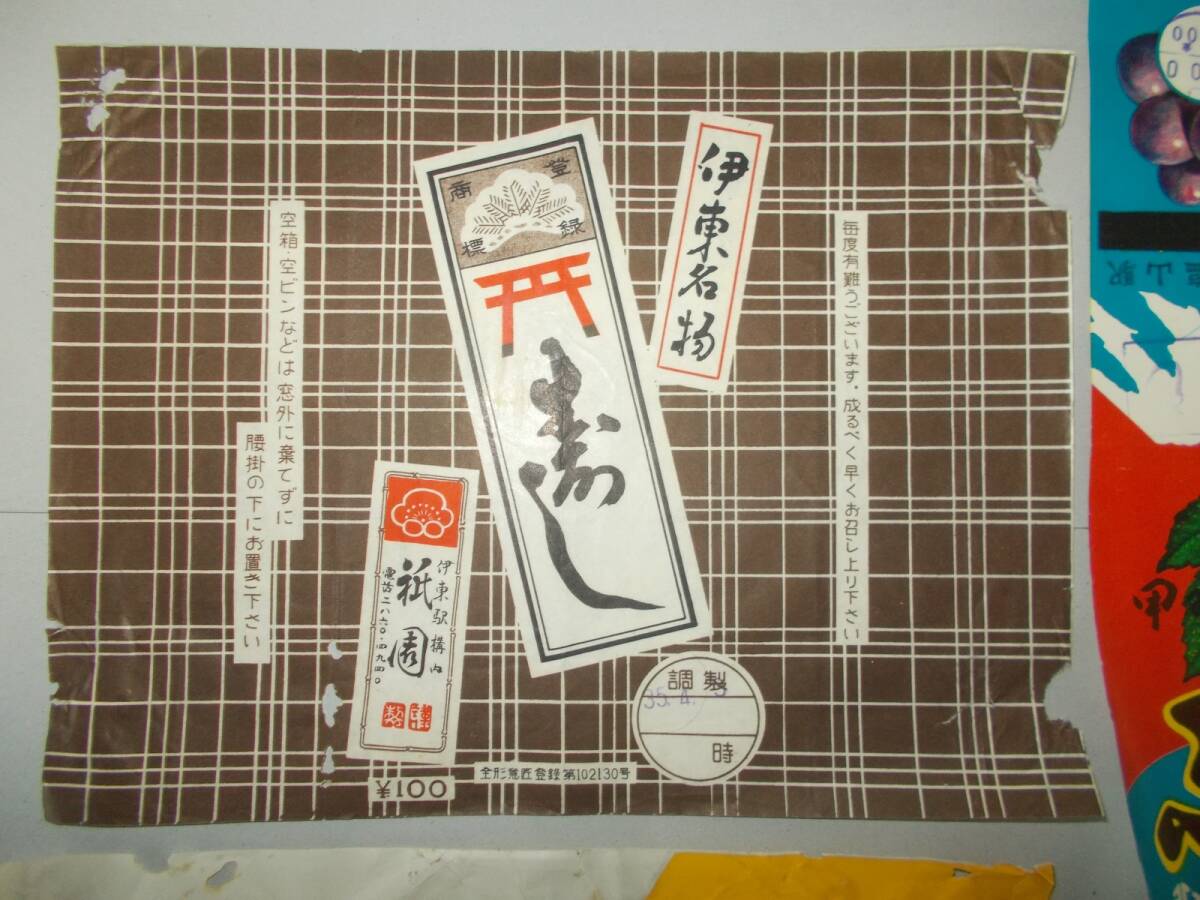 伊東名物
登録
商標
寿し
毎度有難うございます。成るべく早くお召し上り下さい
空箱・空ビンなどは窓外に棄てずに
腰掛の下にお置き下さい
伊東駅構内
祇園
電話二八六〇・四九四〇
¥100
全形意匠登録第102130号
調製
35.4.
時